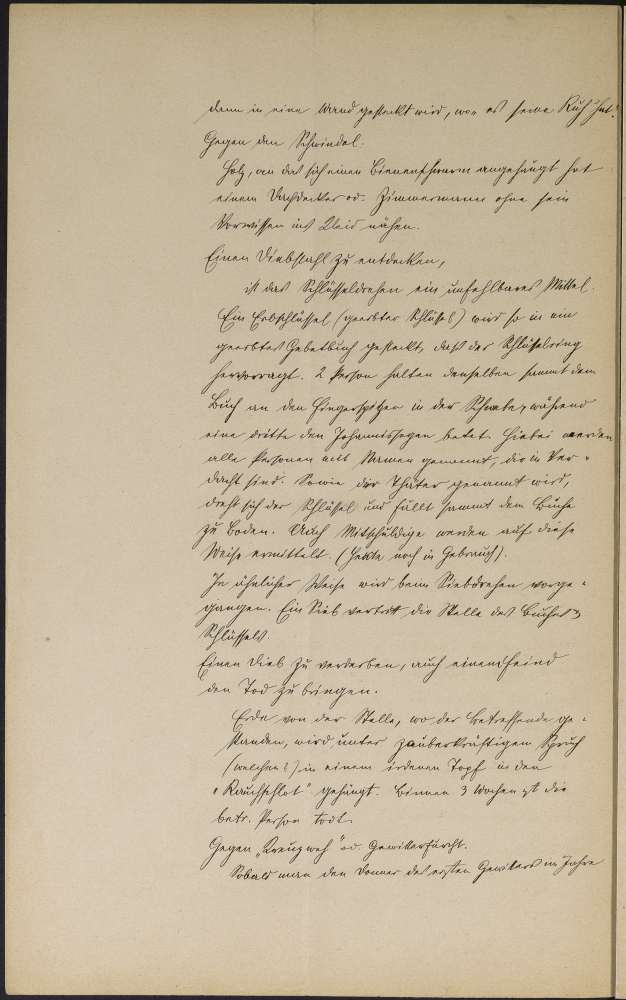 dann in eine Wand gesteckt wird, wo es seine Ruh' hat.
Gegen den Schwindel.
Holz, an das sich einen Bienenschwarm angehängt hat
einem Dachdecker od. Zimmermann ohne sein
Vorwissen ins Kleid nähen.
Einen Diebstahl zu entdecken,
ist das Schlüsseldrehen ein unfehlbares Mittel.
Ein Erbschlüssel (geerbter Schlüssel) wird so in ein
geerbtes Gebetbuch gesteckt, daß der Schlüsselring
hervorragt. 2 Person halten denselben sammt dem
Buch an den Fingerspitzen in der Schwebe, während
eine dritte den Johannissegen betet. Hiebei werden
alle Personen mit Namen genannt, die in Ver-
dacht sind. Sowie der Thäter genannt wird,
dreht sich der Schlüssel und fällt sammt dem Buche
zu Boden. Auch Mitschuldige werden auf diese
Weise ermittelt. (Heute noch in Gebrauch).
In ähnlicher Weise wird beim Siebdrehen vorge-
gangen. Ein Sieb vertritt die Stelle des Buches &
Schlüssels.
Einen Dieb zu verderben, auch einem Feind
den Tod zu bringen.
Erde von der Stelle, wo der Betreffende ge-
standen, wird unter zauberkräftigen Spruch
(welchen?) in einem irdenen Topf in den
"Rauchschlot" gehängt. Binnen 3 Wochen ist die
betr. Person todt.
Gegen "Kreuzweh" od. Gewitterfurcht.
Sobald man den Donner des ersten Gewitters im Jahre